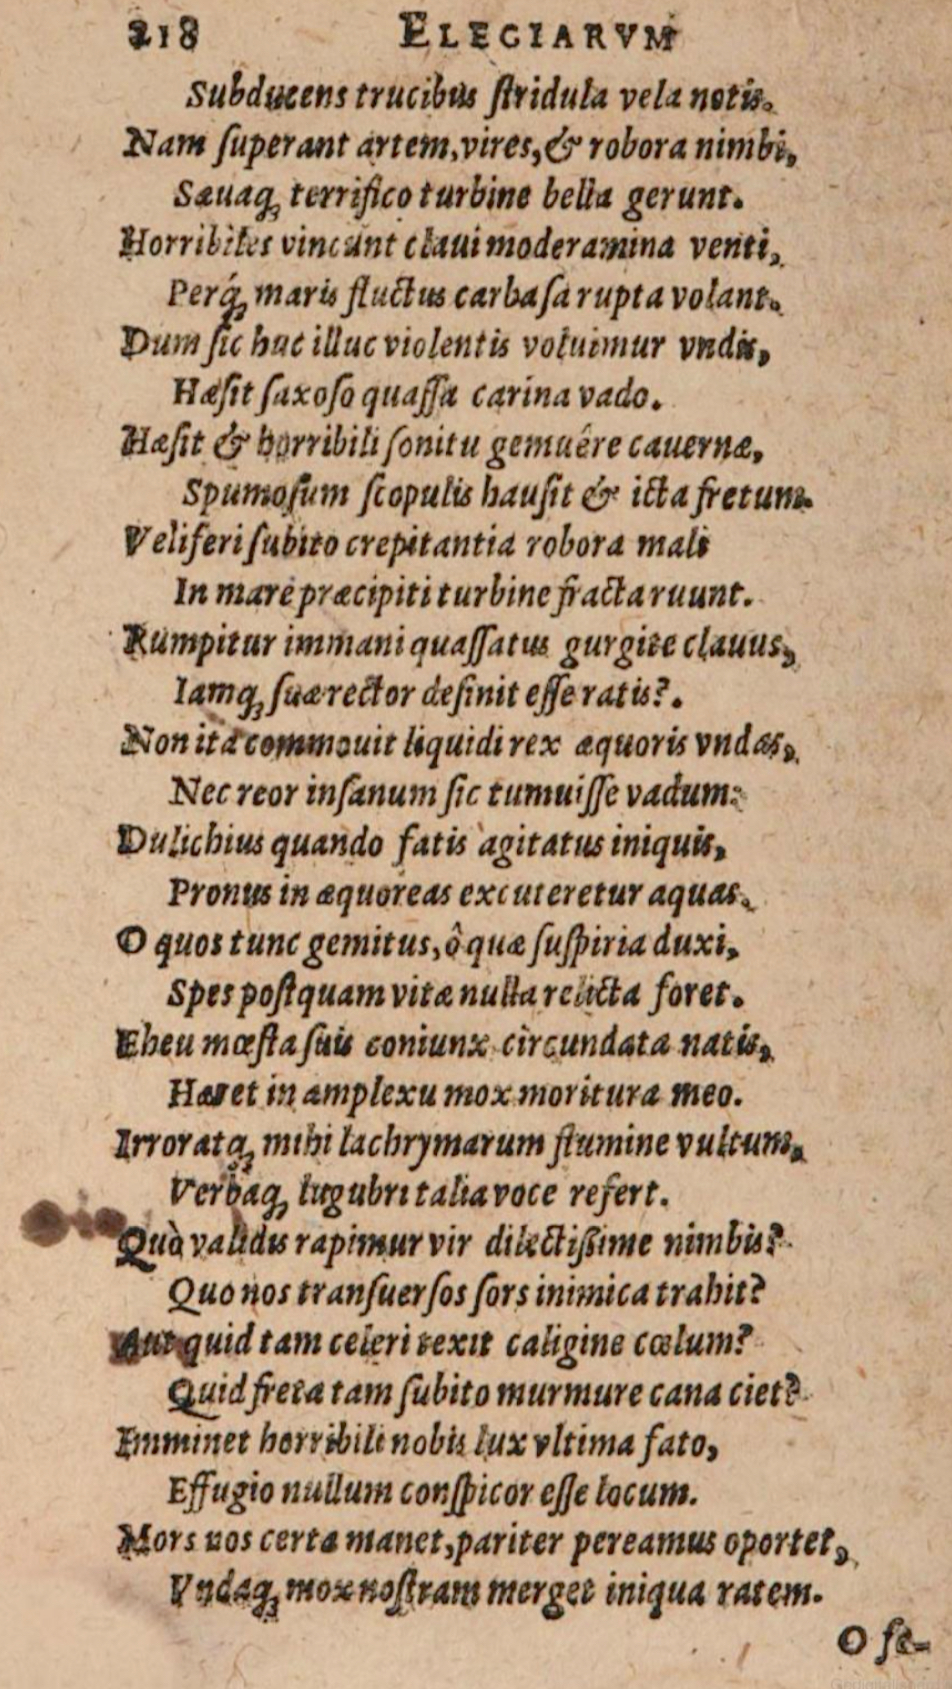 218 ELEGIARVM
Subducens trucibus ſtridula vela notis.
Nam ſuperant artem, vires, & robora nimbi,
Sæuaq́; terrifico turbine bella gerunt.
Horribiles vincunt claui moderamina venti,
Perq́; maris fluctus carbaſa rupta volant.
Dum ſic huc illuc violentis voluimur vndis,
Hæſit ſaxoſo quaſſa carina vado.
Hæſit & horribili ſonitu gemuêre cauernæ,
Spumoſum ſcopulis hauſit & icta fretum.
Veliferi ſubito crepitantia robora mali
In mare præcipiti turbine fracta ruunt.
Rumpitur immani quaſſatus gurgite clauus,
Iamq; ſuæ rector deſinit eſſe ratis?.
Non ita commouit liquidi rex æquoris vndas,
Nec reor inſanum ſic tumuiſſe vadum:
Dulichius quando fatis agitatus iniquis,
Pronus in æquoreas excuteretur aquas.
O quos tunc gemitus, ô quæ ſuſpiria duxi,
Spes poſtquam vitæ nulla relicta foret.
Eheu mœſta ſuis coniunx circundata natis,
Hæret in amplexu mox moritura meo.
Irroratq; mihi lachrymarum flumine vultum,
Verbaq; lugubri talia voce refert.
Quò validis rapimur vir dilectiſsime nimbis?
Quo nos tranſuerſos ſors inimica trahit?
Aut quid tam celeri texit caligine cœlum?
Quid freta tam ſubito murmure cana ciet?
Imminet horribili nobis lux vltima fato,
Effugio nullum conſpicor eſſe locum.
Mors nos certa manet, pariter pereamus oportet,
Vndaq; mox noſtram merget iniqua ratem.
O ſe-